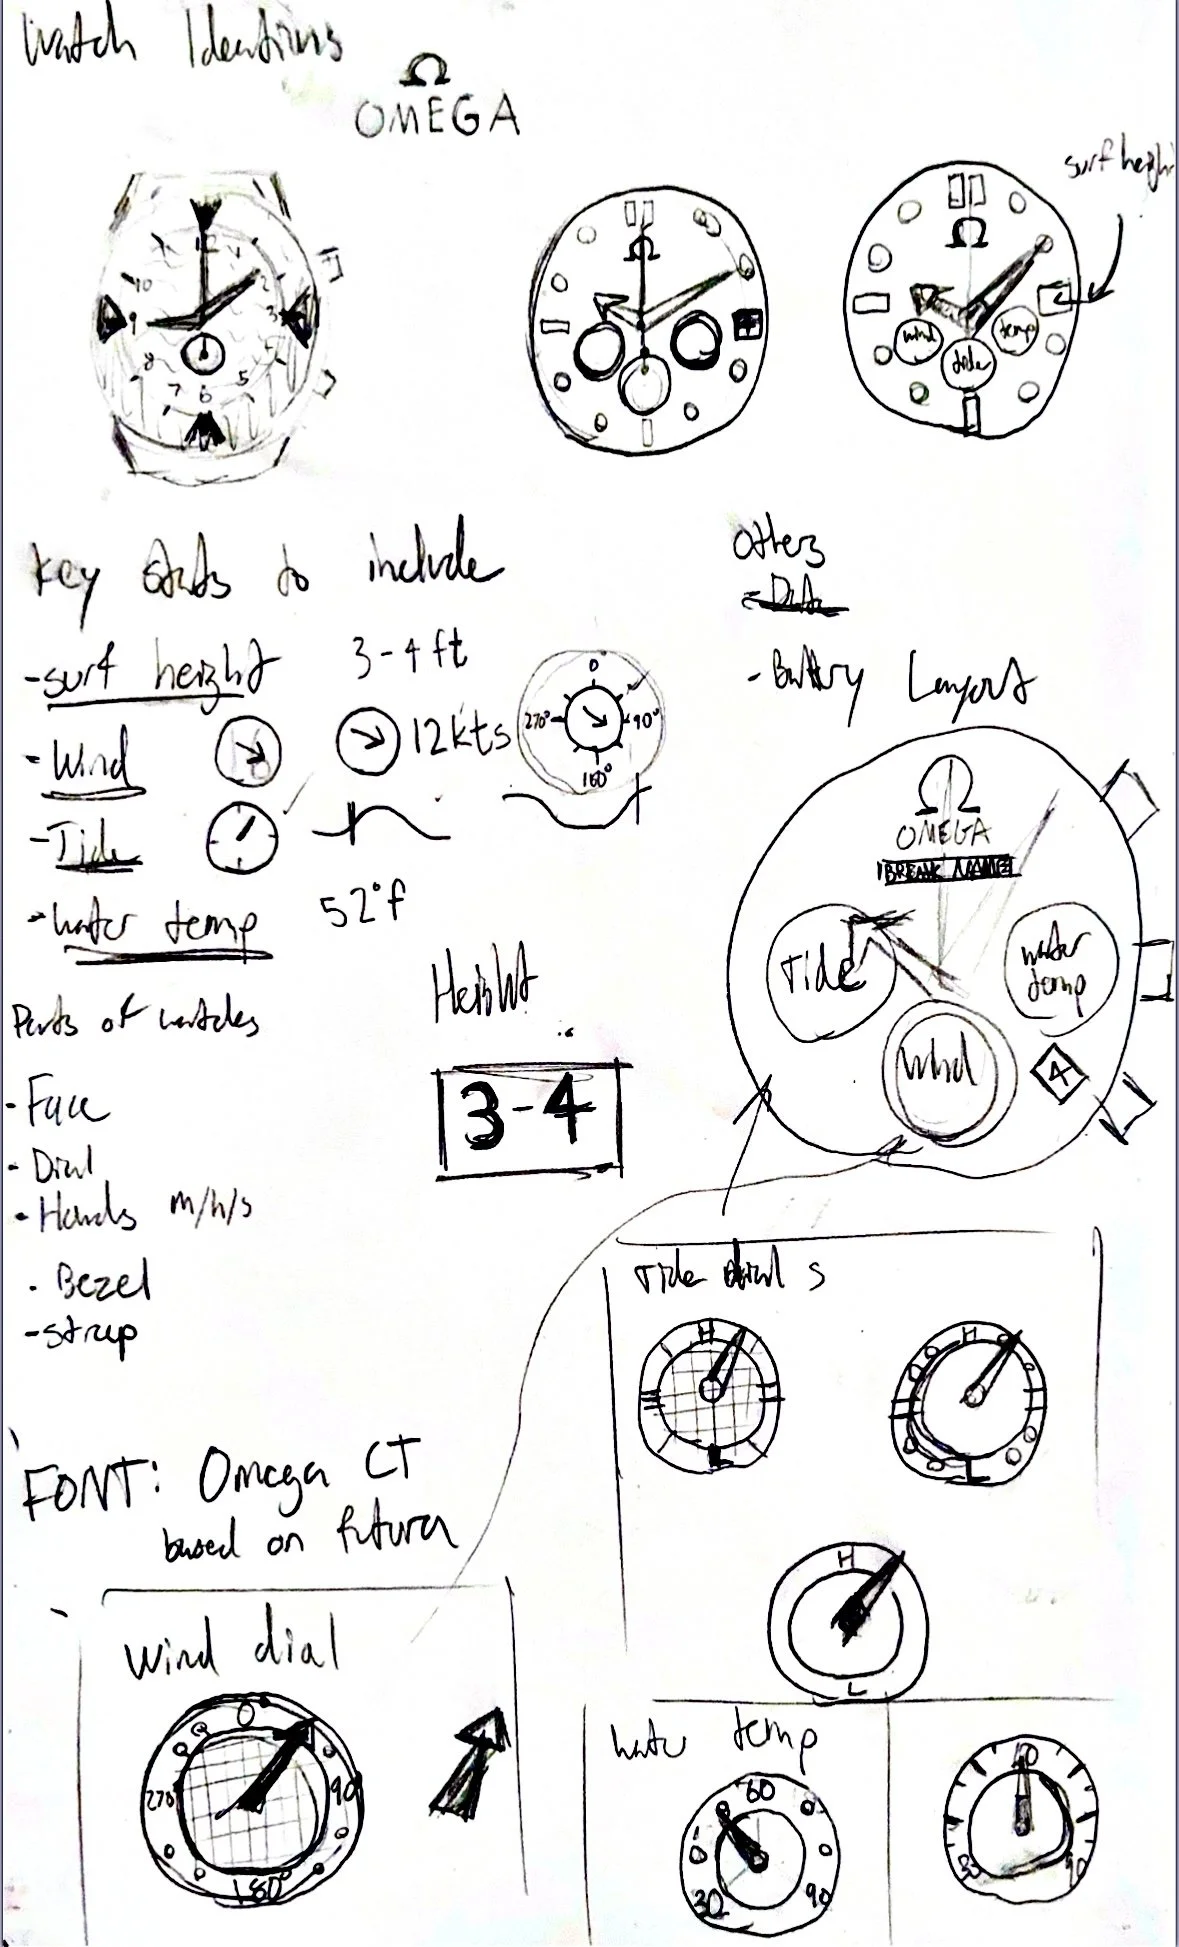 Watch Ideations
Ω
OMEGA
surf height
12
1
2
3
4
5
6
7
8
9
10
Ω
Ω
wind
temp
tide
Key Stats to include
- surf height 3-4 ft
- Wind 12 kts
0
90°
180°
270°
- Tide
- water temp 52°f
Others
- Date
- Battery
Layout
Ω
OMEGA
BREAK NAME
Tide
water
temp
Wind
4
Parts of watches
- Face
- Dial
- Hands m/h/s
- Bezel
- Strap
Height
3-4
FONT: Omega CT
based on futura
Tide dials
H
L
H
L
H
L
Wind dial
0
90
180°
270
water temp
60
30
90
30
90